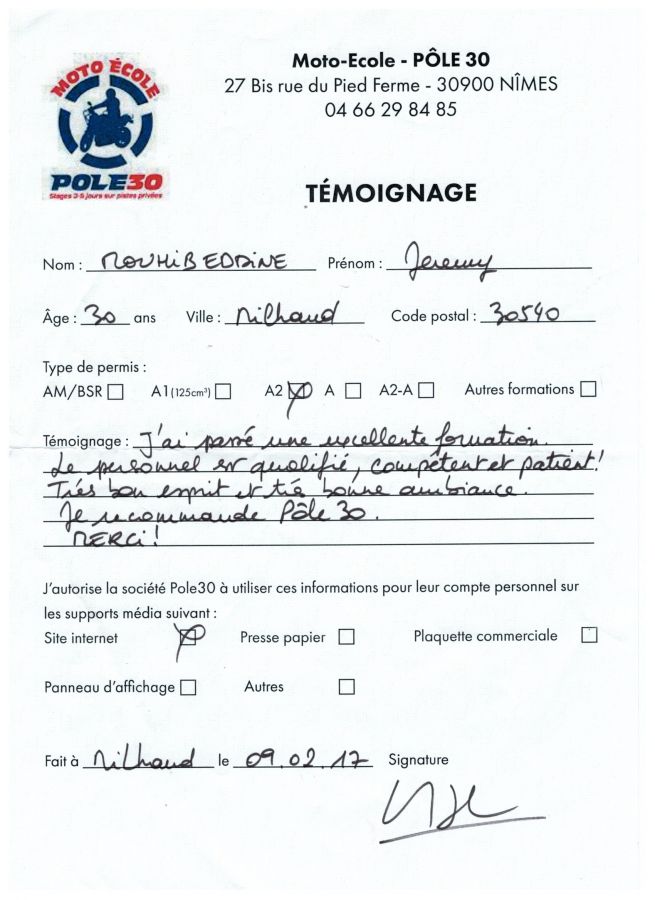 MOTO ÉCOLE
POLE30
Stages 3-5 jours sur pistes privées
Moto-Ecole - PÔLE 30
27 Bis rue du Pied Ferme - 30900 NÎMES
04 66 29 84 85
TÉMOIGNAGE
Nom : MOUHIBEDDINE Prénom : Jeremy
Âge : 30 ans Ville : Milhaud Code postal : 30540
Type de permis :
AM/BSR A1 (125cm³) A2 A A2-A Autres formations
Témoignage : J'ai passé une excellente formation.
Le personnel est qualifié, compétent et patient!
Très bon esprit et très bonne ambiance.
Je recommande Pôle 30.
MERCI!
J'autorise la société Pole30 à utiliser ces informations pour leur compte personnel sur
les supports média suivant :
Site internet Presse papier Plaquette commerciale
Panneau d'affichage Autres
Fait à Milhaud le 09.02.17 Signature